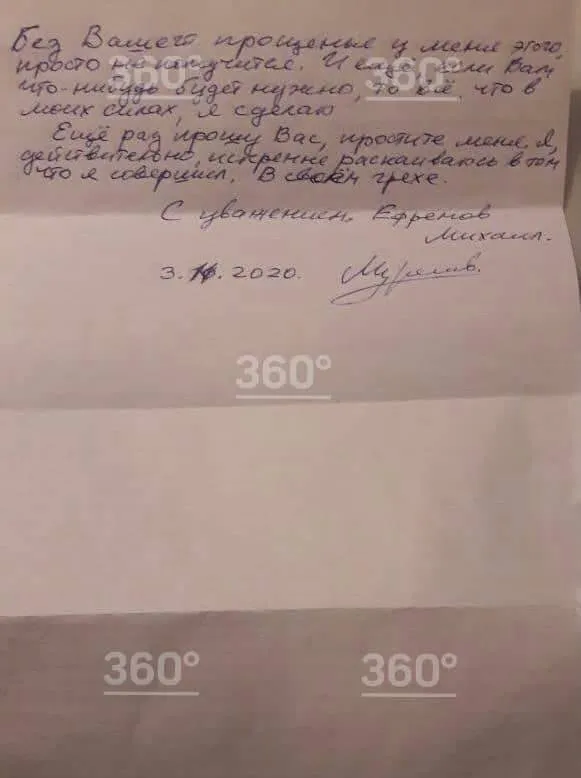 Без Вашего прощенье у меня этого
просто не получится. И ещё, если Вам
что-нибудь будет нужно, то всё, что в
моих силах, я сделаю
Ещё раз прошу Вас, простите меня. Я,
действительно, искренне раскаиваюсь в том
что я совершил. В своём грехе.
С уважением, Ефремов
Михаил.
3. .2020.
360° 360°
360°
360° 360°